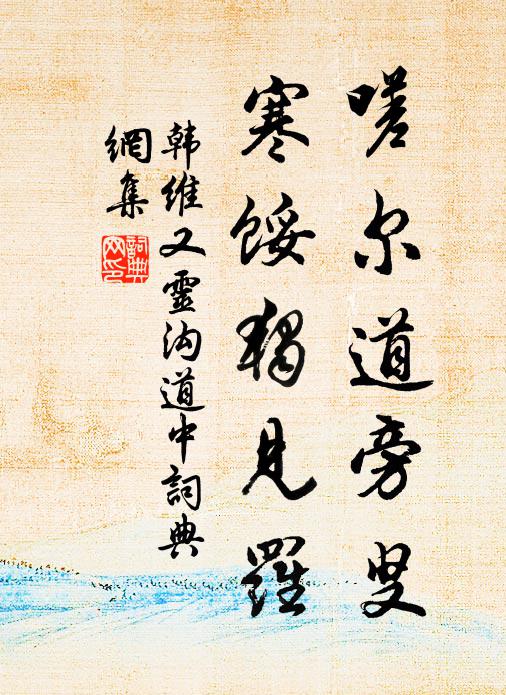 嗟尔道旁叟
寒馁独见罹
韩维又靈沟道中詞典
網集
詞典
网印